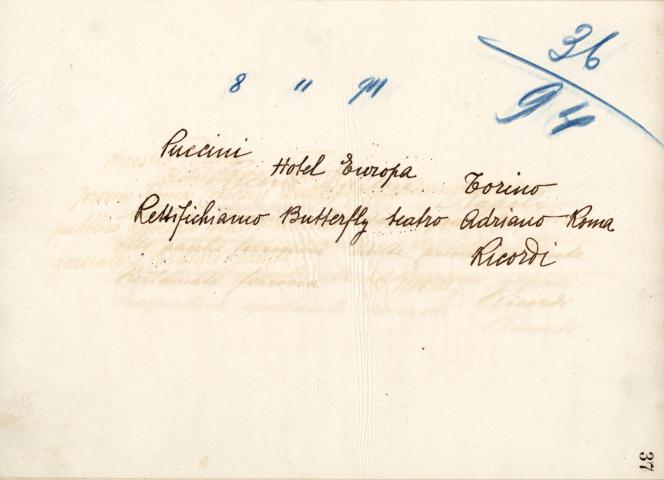 36
94
8 " 911
Puccini
Hotel Europa
Torino
Rettifichiamo Butterfly teatro Adriano Roma
Ricordi
37